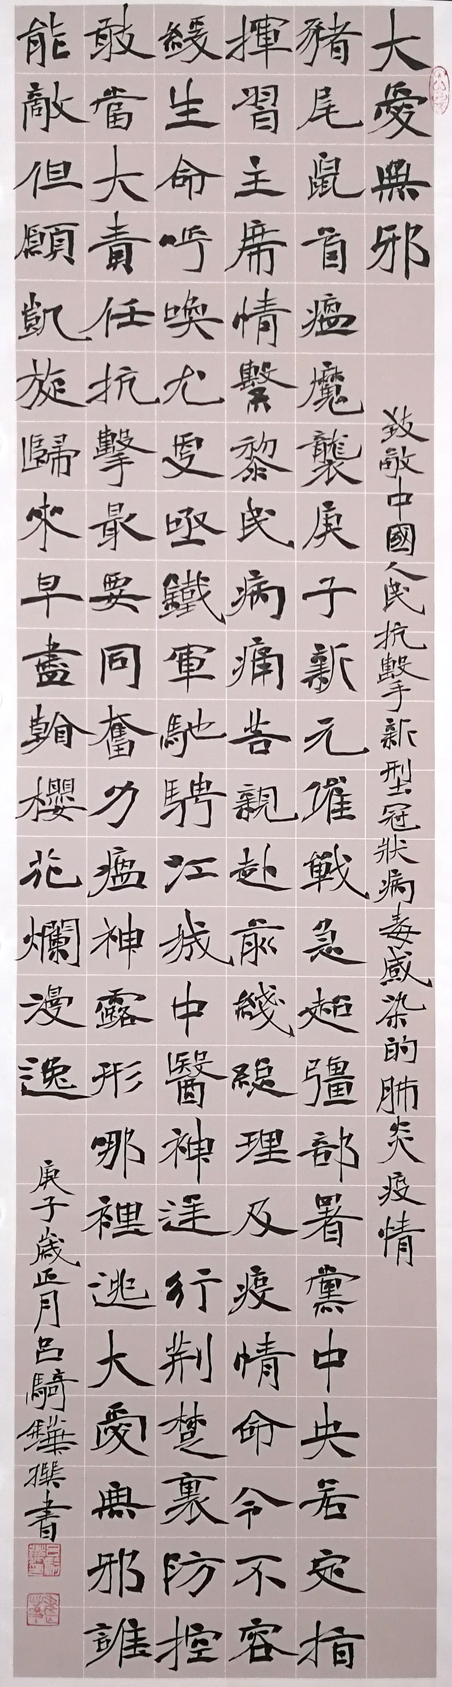 大愛無邪
致敬中國人民抗擊新型冠狀病毒感染的肺炎疫情
豬尾鼠首瘟魔襲庚子新元催戰急超疆部署黨中央若定指
揮習主席情繫黎民病痛苦親赴前綫總理及疫情命令不容
緩生命呼喚尤憂亟鐵軍馳騁江城中醫神逕行荆楚裏防控
敢當大責任抗擊最要同奮力瘟神露形哪裡逃大愛無邪誰
能敵但願凱旋歸來早盡翰櫻花爛漫逸
庚子歲正月呂騎鏵撰書